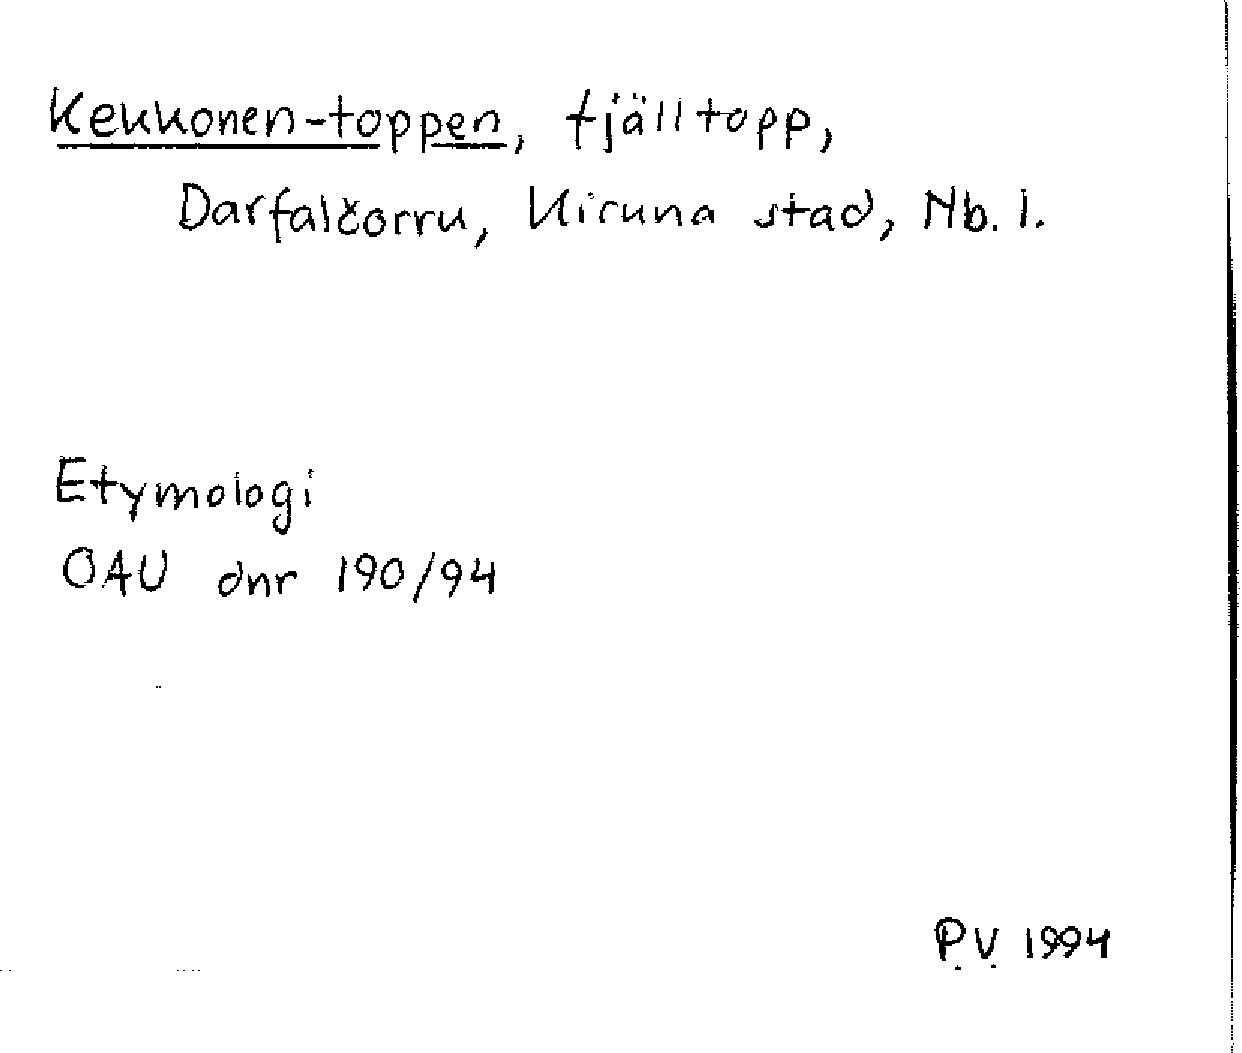 Kekkonen-toppen, fjälltopp,
Darfalčorru, Kiruna stad, Nb. l.
Etymologi
OAU dnr 190/94
P.V. 1994